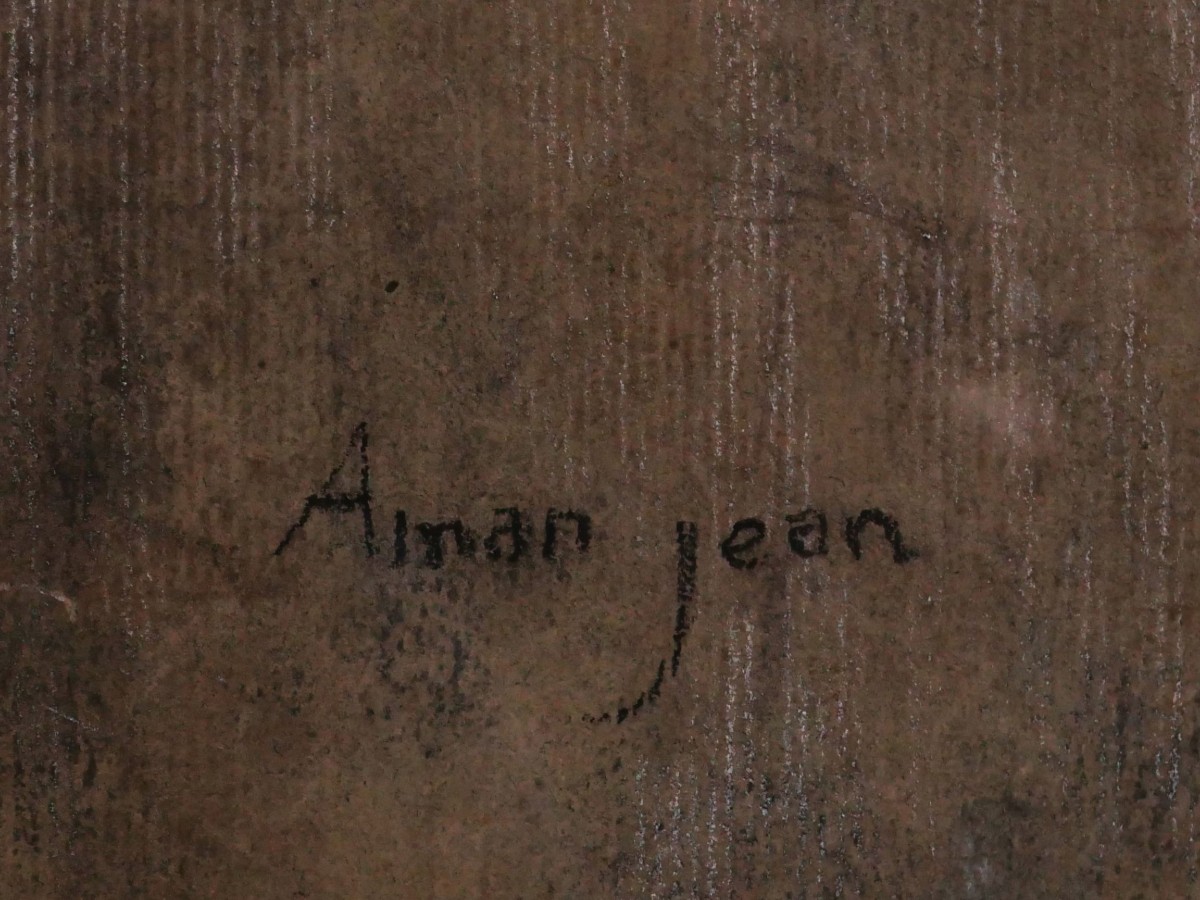 Aman jean